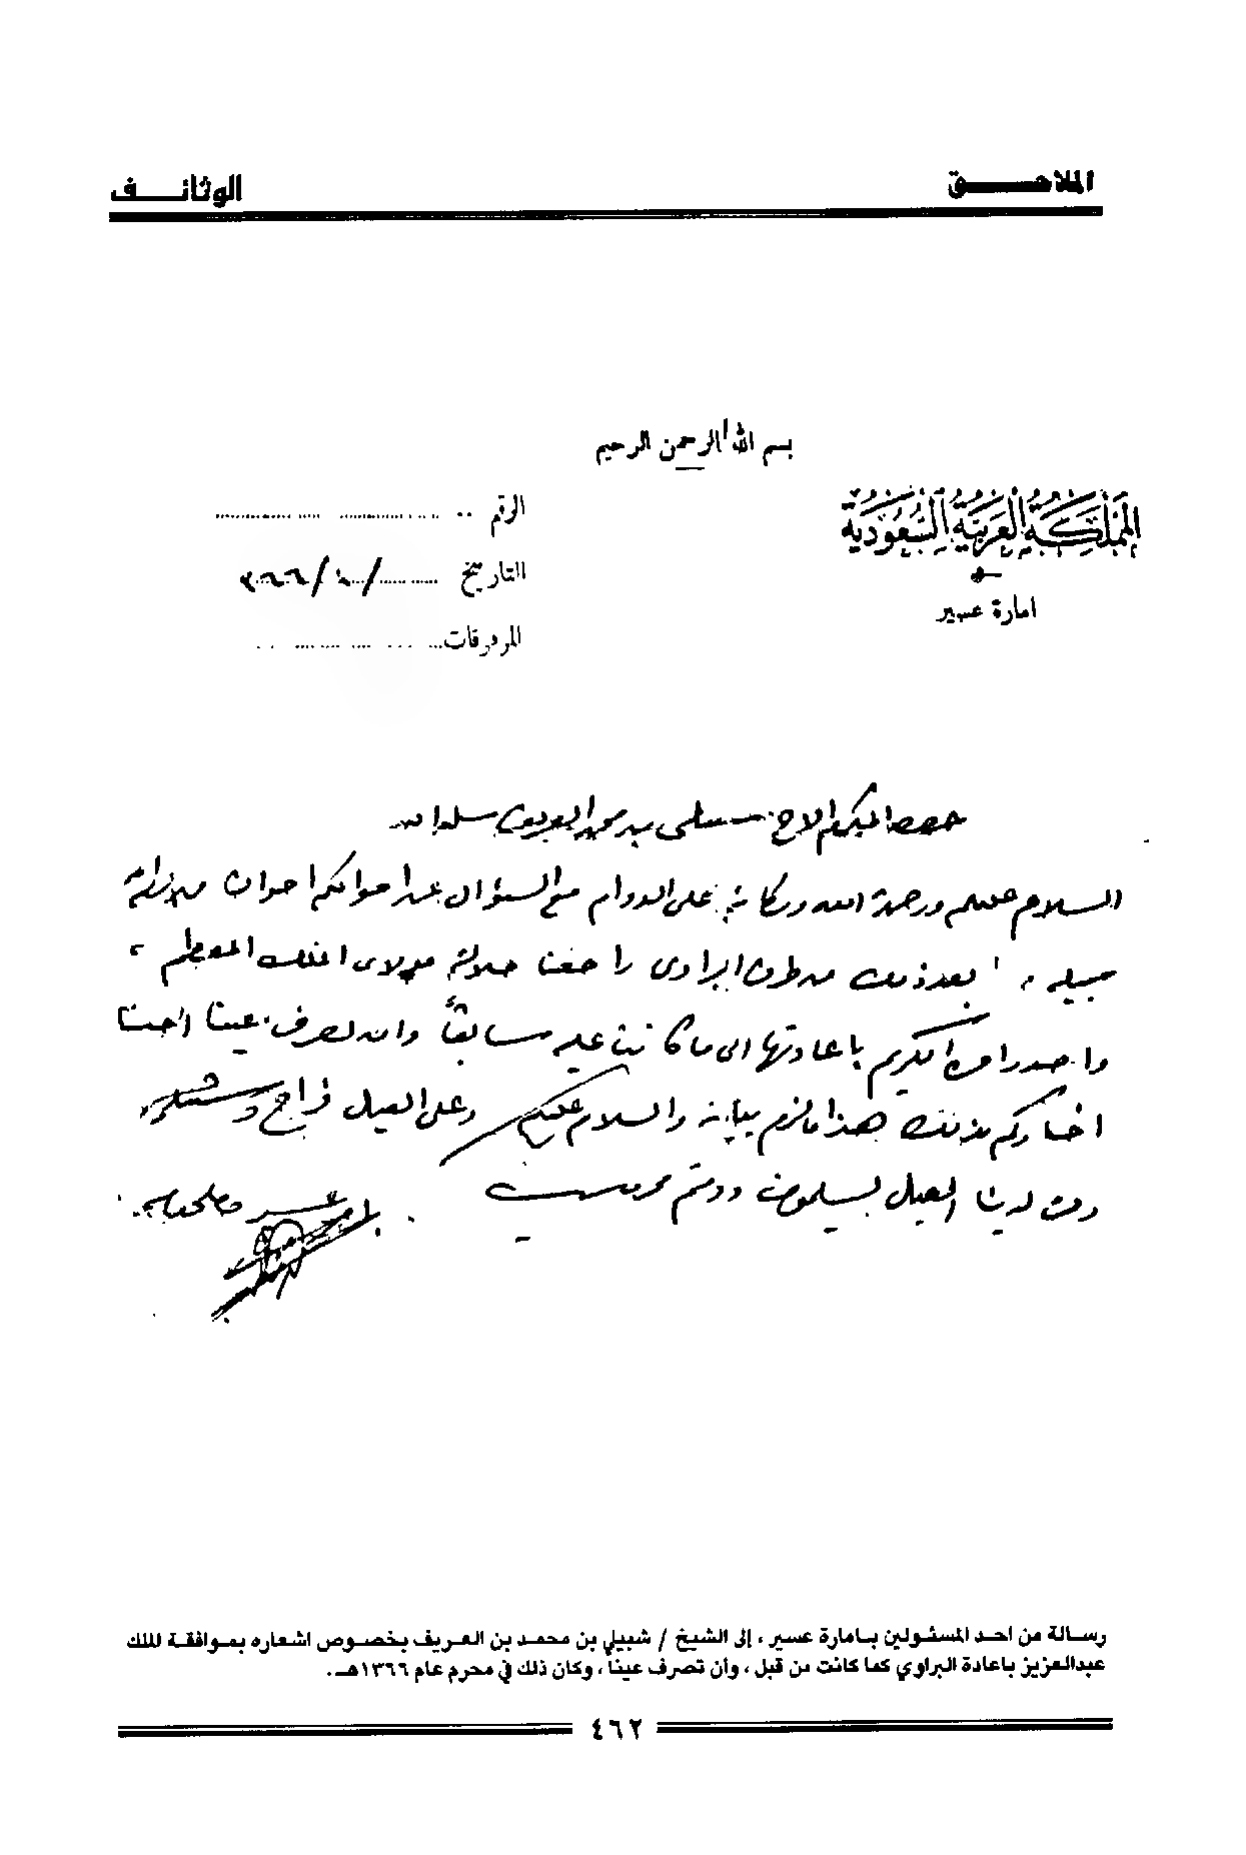 الملاحــــق
الوثائـــف
بسم الله الرحمن الرحيم
المملكة العربية السعودية
امارة عسير
الرقم
التاريخ / ١ / ٣٦٦
المرفقات
حضرة المكرم الاخ شبيلي بن محمد العريف سلمه الله
السلام عليكم ورحمة الله وبركاته على الدوام مع السؤال عن احوالكم احوالنا من كرم الله
جميله ، بعد ذلك من طرف البراوي راجعنا جلالة مولاي الملك المعظم ،
واصدر امره الكريم باعادتها الى ما كانت عليه سابقاً وان تصرف عيناً احببنا
اخباركم بذلك هذا ما لزم بيانه والسلام عليكم وعلى العيال فراج
ومن لدينا العيال يسلمون ودمتم محروسين
عسير
رسـالة من احـد المسئـولين بـامارة عسير ، إلى الشيخ / شبيلي بن محمـد بن العـريف بخصـوص اشعاره بمـوافقـة الملك
عبدالعزيز باعادة البراوي كما كانت من قبل ، وان تصرف عينا ، وكان ذلك في محرم عام ١٣٦٦هـ.
٤٦٢